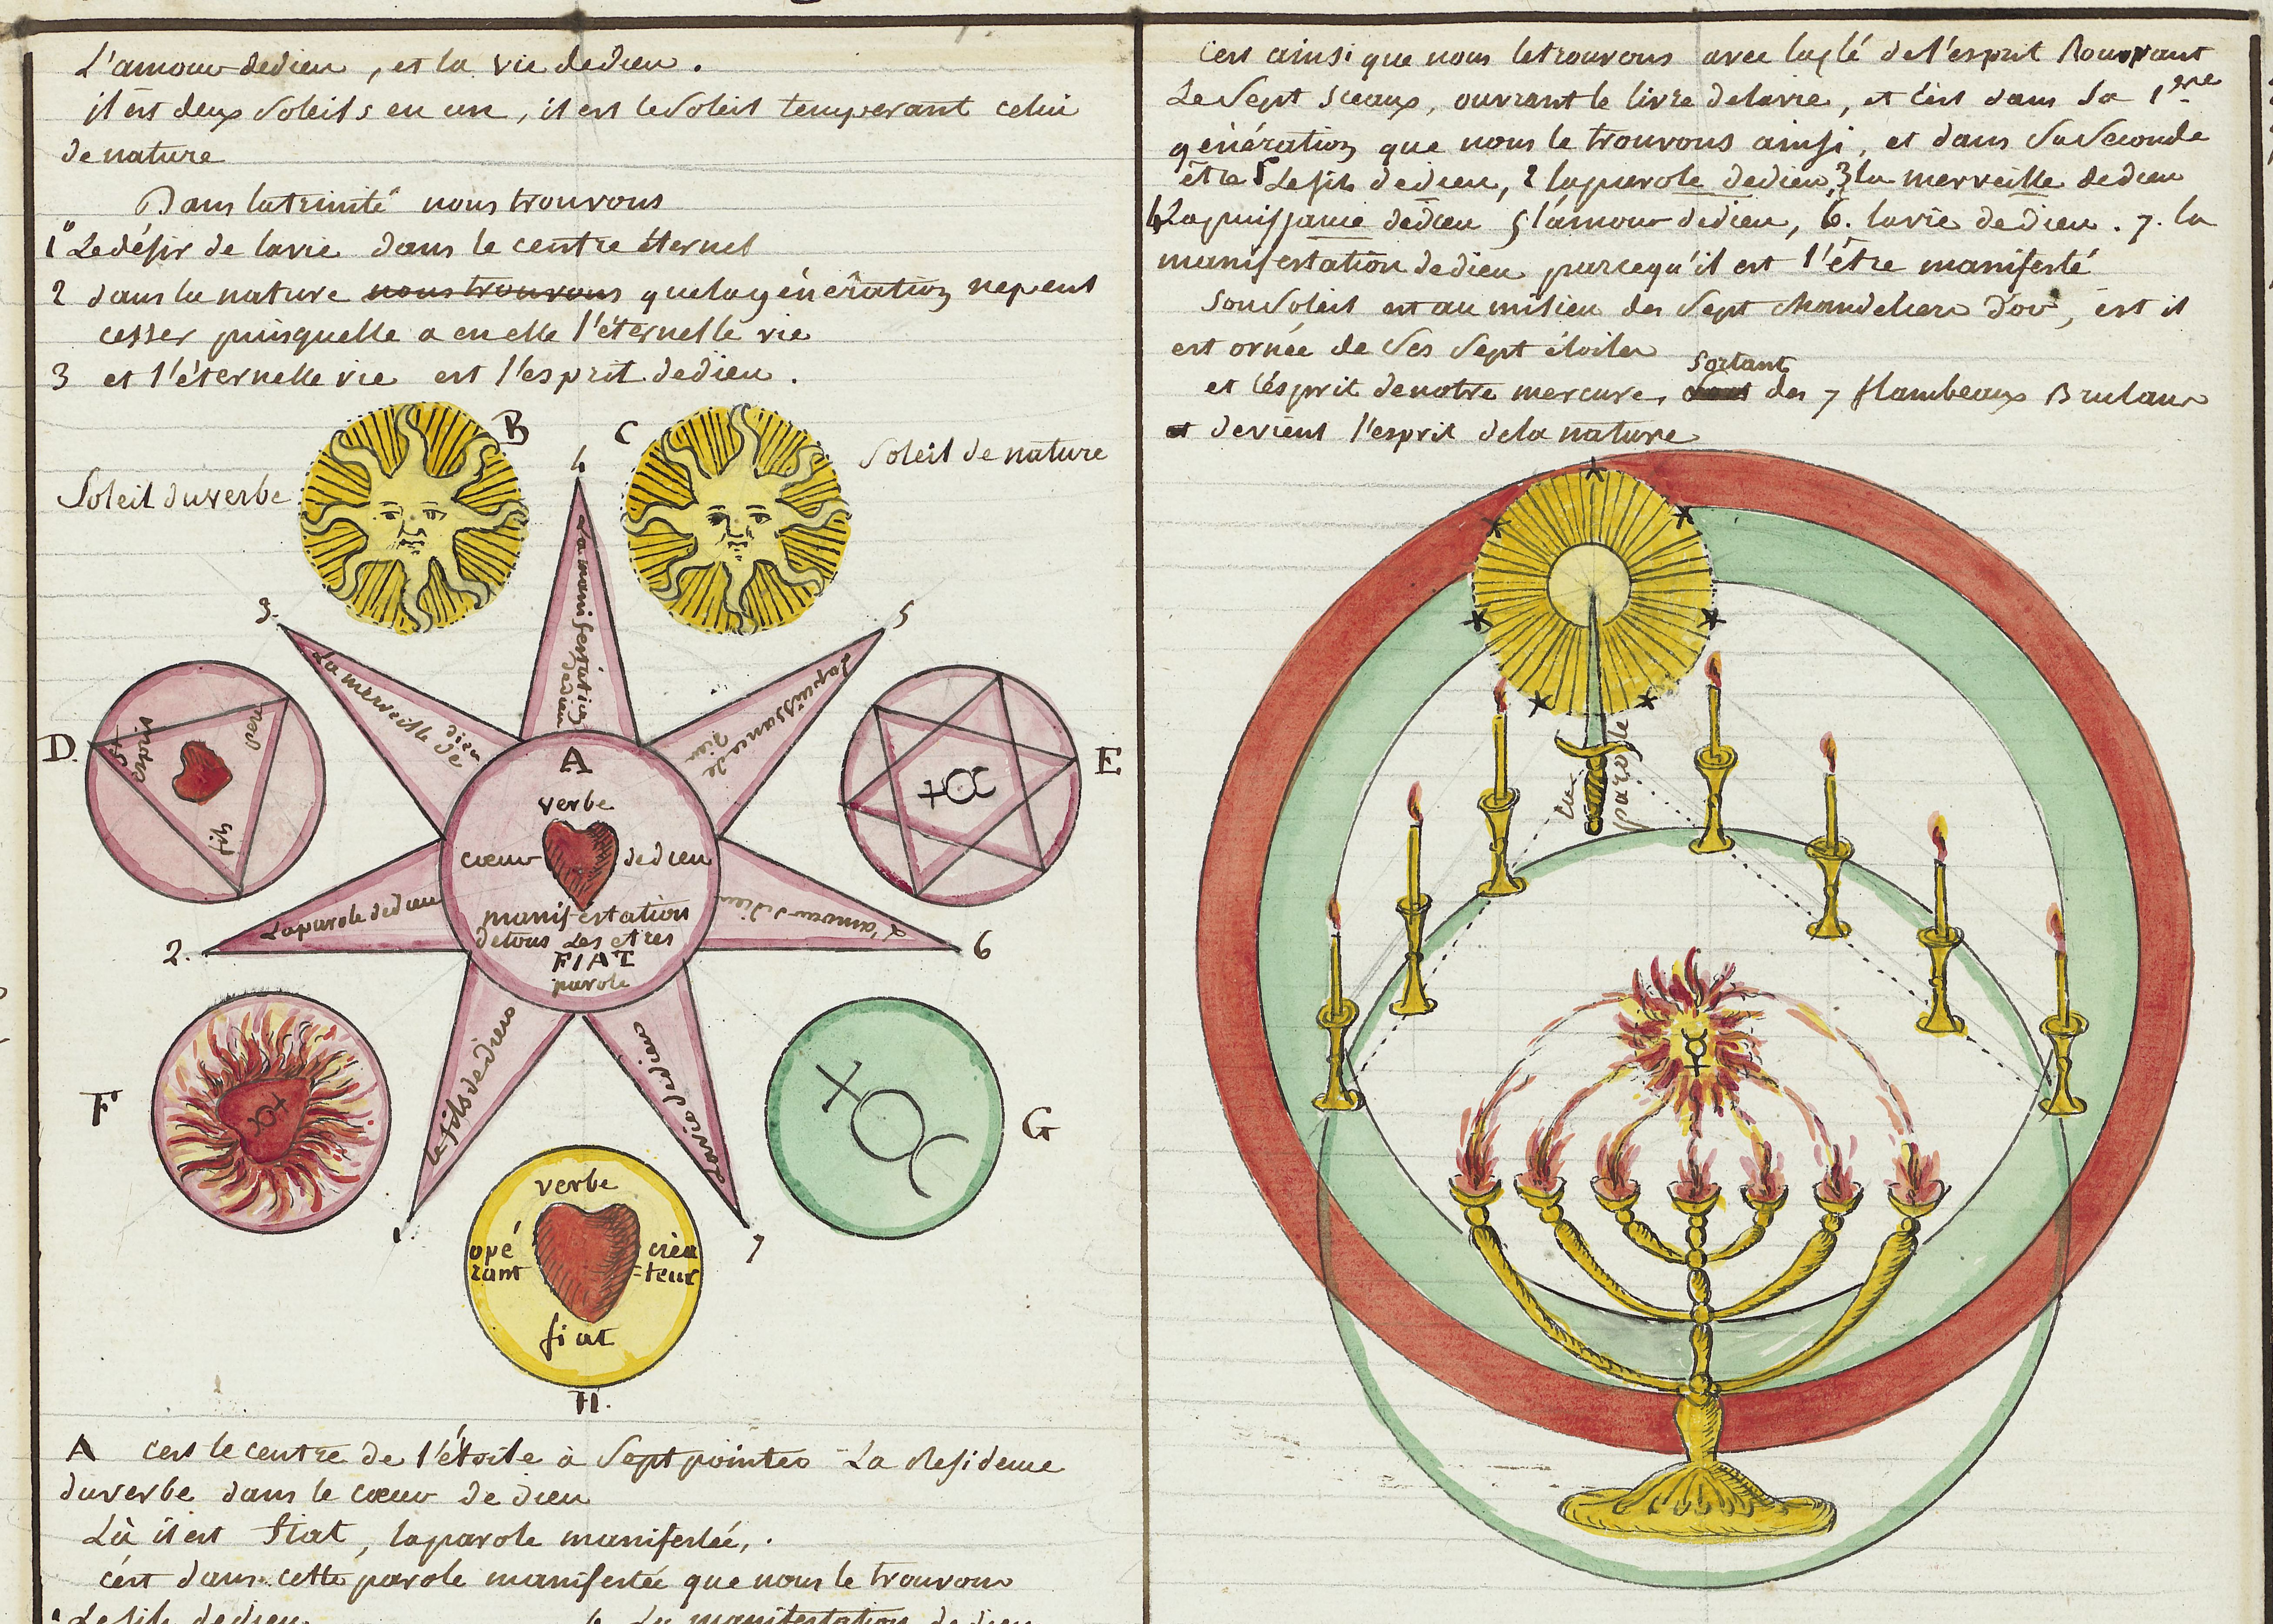 L'amour de dieu, et la vie de dieu.
il est deux Soleils en un, il est le Soleil temperant celui
de nature
Dans la trinité nous trouvons
1° Le désir de la vie dans le centre éternel
2 dans la nature nous trouvons que la génération ne peut
cesser puisquelle a en elle l'éternelle vie
3 et l'éternelle vie est l'esprit de dieu.
B
C
Soleil du verbe
Soleil de nature
4
3.
5
La manifestation de dieu
La merveille de dieu
La puissance de dieu
D.
E
A
verbe
coeur de dieu
manifestation
de tous Les etres
FIAT
parole
La parole de dieu
L'amour de dieu
2.
6
le fils de dieu
La vie de dieu
F
G
1
7
verbe
opé
rant
créa
=teur
fiat
H.
A cest le centre de l'étoile à Sept pointes La Residence
du verbe dans le coeur de dieu
Là il est fiat, la parole manifestée,.
cést dans cette parole manifestée que nous le trouvons
Le fils de dieu
La manifestation de dieu
cest ainsi que nous le trouvons avec la clé de l'esprit Rouvrant
Le Sept Sceaux, ouvrant le livre de la vie, et cést dans Sa 1ere
génération que nous le trouvons ainsi, et dans Sa Seconde
être 1 Le fils de dieu, 2 la parole de dieu, 3 la merveille de dieu
4 La puissance de dieu 5 l'amour de dieu, 6. la vie de dieu. 7. la
manifestation de dieu parcequ'il est l'être manifesté
Son Soleil est au milieu des Sept chandeliers d'or, est il
est ornée de Ses Sept étoiles
sortant
et l'ésprit de notre mercure, des 7 flambeaux Brulans
devient l'esprit de la nature
parole